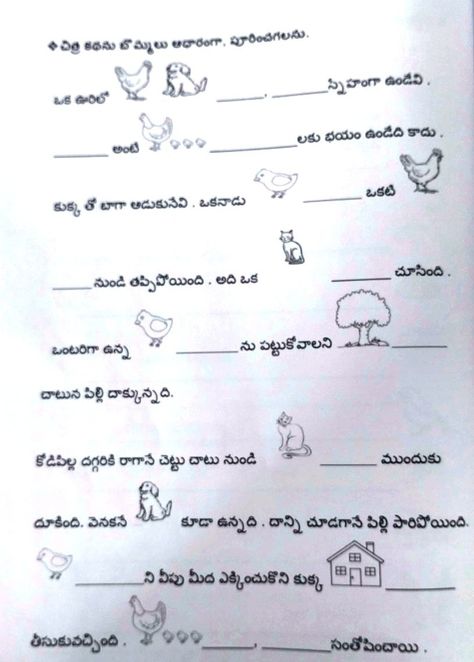 ❖ చిత్ర కథను బొమ్మలు ఆధారంగా, పూరించగలను.
ఒక ఊరిలో ______, ______ స్నేహంగా ఉండేవి.
______ అంటే ______ లకు భయం ఉండేది కాదు.
కుక్క తో బాగా ఆడుకునేవి. ఒకనాడు ______ ఒకటి
______ నుండి తప్పిపోయింది. అది ఒక ______ చూసింది.
ఒంటరిగా ఉన్న ______ ను పట్టుకోవాలని ______
చాటున పిల్లి దాక్కున్నది.
కోడిపిల్ల దగ్గరికి రాగానే చెట్టు చాటు నుండి ______ ముందుకు
దూకింది. వెనకనే కూడా ఉన్నది. దాన్ని చూడగానే పిల్లి పారిపోయింది.
______ ని వీపు మీద ఎక్కించుకొని కుక్క ______
తీసుకువచ్చింది. ______, ______ సంతోషించాయి.